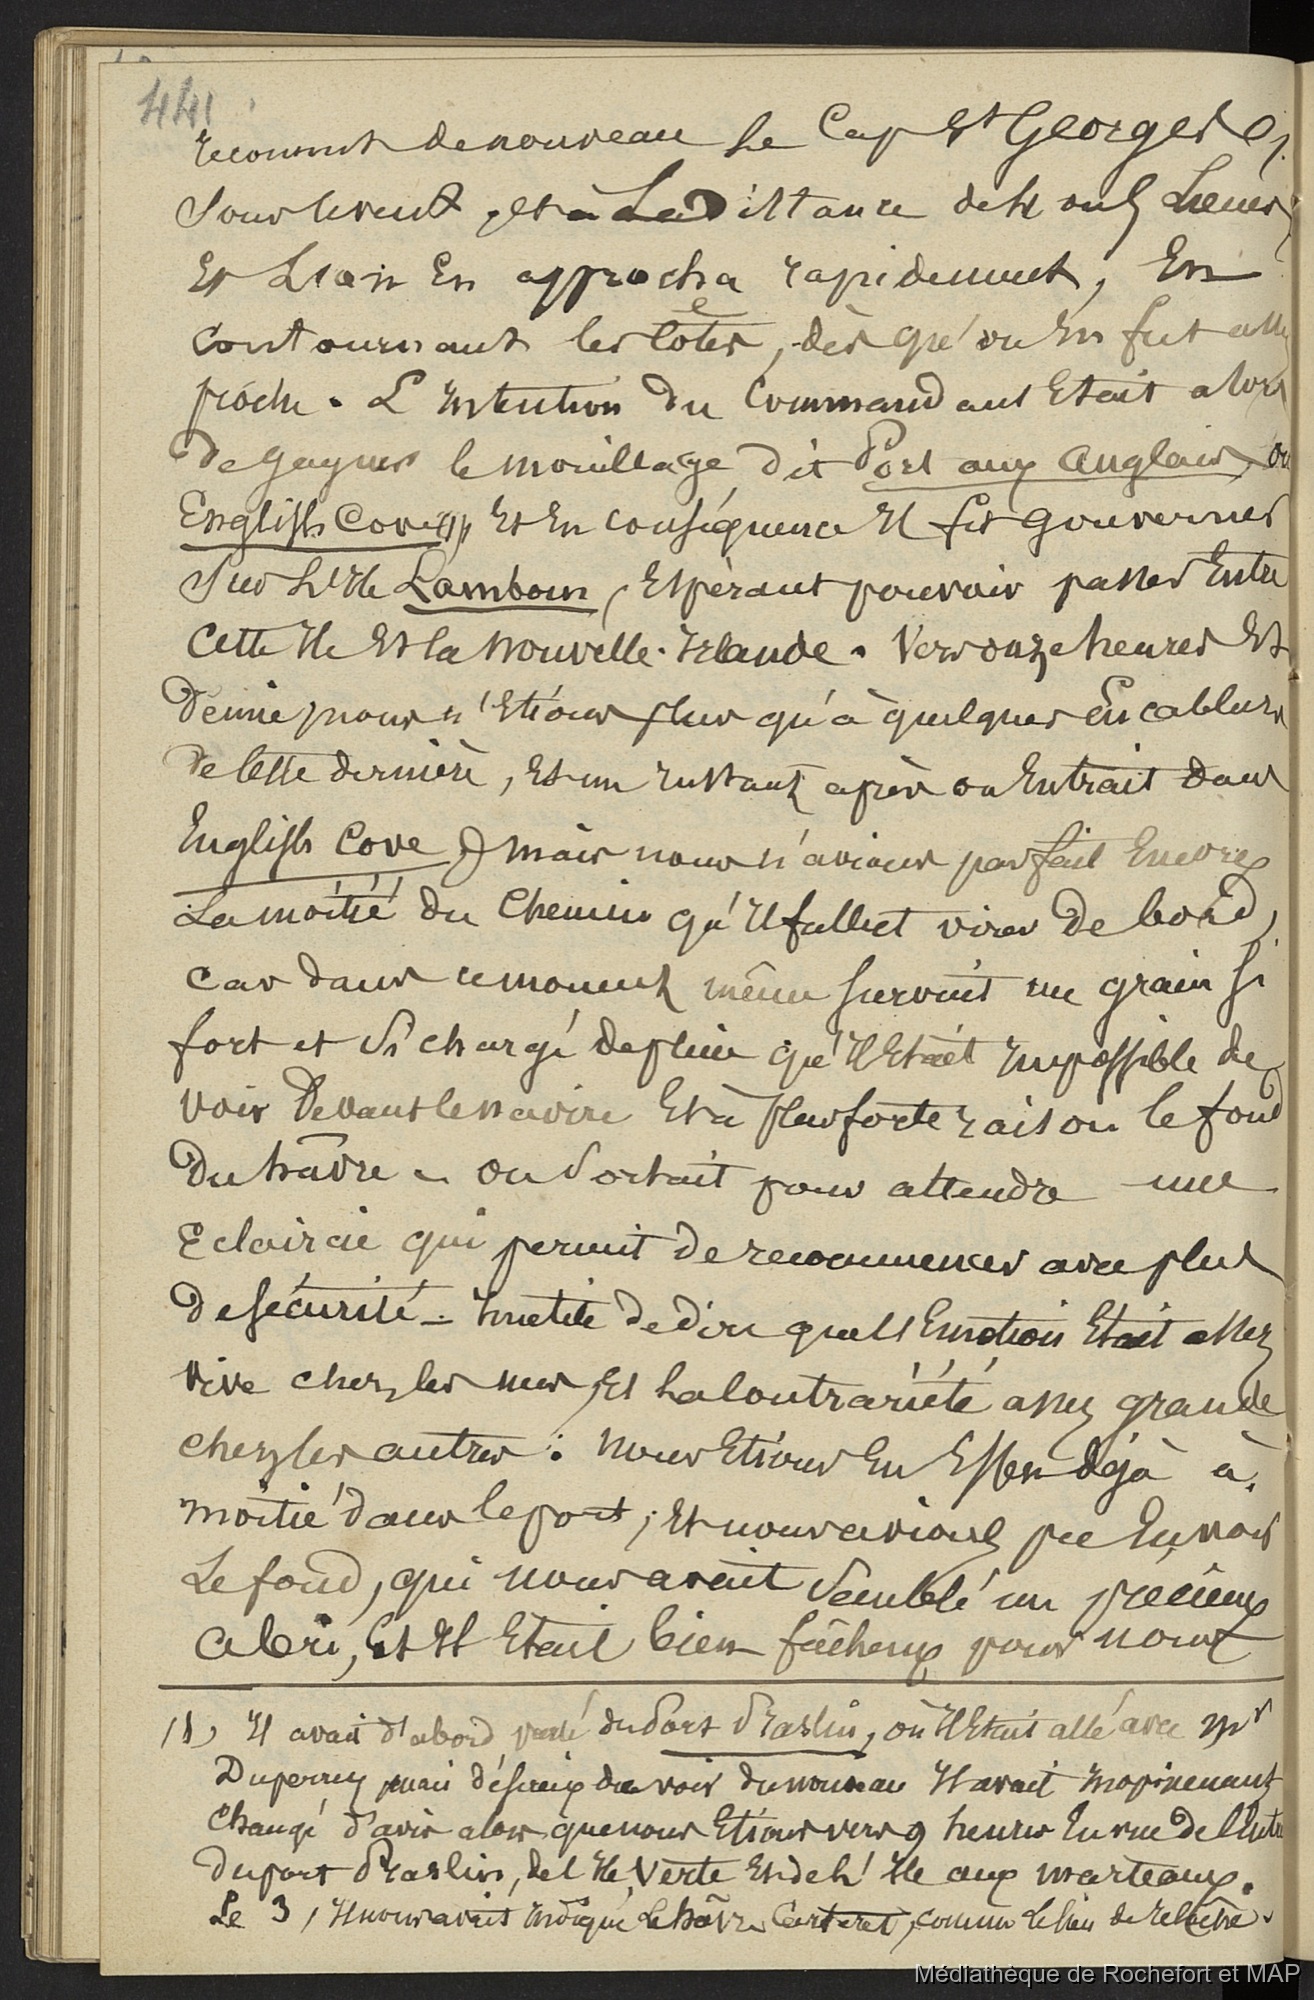 441
reconnut de nouveau le Cap St Georges
sous le vent, et à La Distance de 4 ou 5 Lieues
Et L'on En approcha rapidement, En
contournant les côtes, dès qu'on En fut assez
proche. L'Intention du Commandant Etait alors
de gagner le mouillage dit Port aux Anglais, ou
English Cove (1), Et En conséquence Il fit gouverner
Sur L'Ile Lambom, Espérant pouvoir passer Entre
Cette Ile Et la Nouvelle-Irlande. Vers onze heures Et
Demie, nous n'Etions plus qu'à quelques Encablures
de Cette dernière, Et un Instant après on Entrait dans
English Cove, mais nous n'avions pas fait Encore
La moitié du Chemin qu'Il fallut virer de bord,
car dans ce moment même survint un grain si
fort et si chargé de pluie qu'Il Etait Impossible de
voir Devant le navire Et à plus forte raison le fond
Du hâvre. On Sortait pour attendre une
Eclaircie qui permit de recommencer avec plus
De sécurité. Inutile de dire que l'Emotion Etait assez
vive chez les uns, Et La Contrariété assez grande
chez les autres : Nous Etions En Effet déjà à
moitié dans le port, Et nous avions pu En voir
Le fond, qui nous avait Semblé un précieux
abri, Et Il Etait bien fâcheux pour nous
(1) Il avait d'abord parlé du Port Praslin, où Il Etait allé avec Mr
Duperrey, mais désireux de voir du nouveau Il avait Inopinément
Changé d'avis alors que nous Etions vers 9 heures En vue de l'Entrée
du port Praslin, de l'Ile Verte Et de L'Ile aux marteaux.
Le 3, Il nous avait Indiqué Le hâvre Carteret, comme Le lieu de relâche.
Médiathèque de Rochefort et MAP